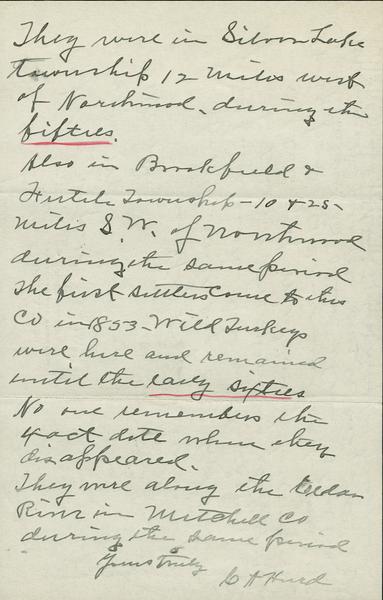 They were in Silver Lake
township 12 miles west
of Northwood, during the
fifties.
Also in Brookfield &
Fertile Township - 10 & 25 -
miles S.W. of Northwood
during the same period
The first settlers come to this
Co in 1853 - Wild Turkeys
were here and remained
until the early sixties
No one remembers the
exact date when they
disappeared.
They were along the Cedar
River in Mitchell Co
during the same period
Yours truly
C A Hurd